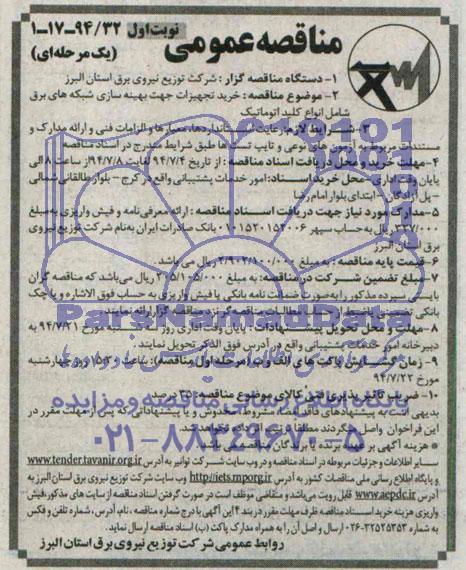 مناقصه عمومی نوبت اول ۹۴/۳۲-۱۷-۱
(یک مرحله‌ای)
۱- دستگاه مناقصه گزار : شرکت توزیع نیروی برق استان البرز
۲- موضوع مناقصه : خرید تجهیزات جهت بهینه سازی شبکه های برق
شامل انواع کلید اتوماتیک
۳- شرایط لازم: رعایت استانداردها، معیارها و الزامات فنی و ارائه مدارک و
مستندات مربوط به آزمون های نوعی و تایپ تست‌ها طبق شرایط مندرج در اسناد مناقصه
۴- مهلت خرید و محل دریافت اسناد مناقصه : از تاریخ ۹۴/۷/۴ لغایت ۹۴/۷/۸ از ساعت ۸ الی
پایان وقت اداری - محل خرید اسناد: امور خدمات پشتیبانی واقع در کرج - بلوار طالقانی شمالی
- پل آزادگان - ابتدای بلوار امام رضا
۵- مدارک مورد نیاز جهت دریافت اسناد مناقصه : ارائه معرفی نامه و فیش واریزی به مبلغ
۳۳۷/۰۰۰ ریال به حساب سپهر ۰۱۰۱۵۲۰۱۵۲۰۰۶ بانک صادرات ایران به نام شرکت توزیع نیروی
برق استان البرز
۶- قیمت پایه مناقصه : به مبلغ ۲/۹۰۲/۱۰۰/۰۰۰ ریال می باشد.
۷- مبلغ تضمین شرکت در مناقصه: به مبلغ ۲۰۵/۱۰۵/۰۰۰ ریال می‌باشد که مناقصه گران
بایستی سپرده مذکور را به صورت ضمانت نامه بانکی یا فیش واریزی به حساب فوق الاشاره و یا چک
بانکی تضمینی یا ضبط از محل مطالبات مناقصه گر نزد مناقصه گزار ارائه نمایند.
۸- مهلت و محل تحویل پیشنهادات : پایان وقت اداری روز سه شنبه مورخ ۹۴/۷/۲۱ به
دبیرخانه امور خدمات پشتیبانی واقع در آدرس فوق الذکر تحویل نمایند.
۹- زمان گشایش پاکت های الف و ب (مرحله اول مناقصه): ساعت ۱۵:۳۰ روز چهارشنبه
مورخ ۹۴/۷/۲۲
۱۰- ضریب تاثیر پذیری فنی کالای موضوع مناقصه ۳۵ درصد
بدیهی است به پیشنهادهای فاقد امضاء مشروط، مخدوش و یا پیشنهاداتی که پس از مهلت مقرر در
این فراخوان واصل میگردند مطلقا ترتیب اثر داده نخواهد شد.
* هزینه آگهی بر عهده برنده یا برندگان مناقصه می باشد.
سایر اطلاعات و جزئیات مربوطه در اسناد مناقصه و در وب سایت شرکت توانیر به آدرس www.tender.tavanir.org.ir
و پایگاه اطلاع رسانی ملی مناقصات کشور به آدرس http://iets.mporg.ir وب سایت شرکت توزیع نیروی برق استان البرز به
آدرس www.aepdc.ir قابل رویت می‌باشد و متقاضی موظف است در صورت گرفتن اسناد مناقصه از سایت های مذکور فیش
واریزی هزینه خرید اسناد مناقصه ظرف مهلت مقرر در بند ۴ این آگهی با درج شماره مناقصه، نام، آدرس، شماره تلفن و فکس
به شماره ۳۲۵۲۵۳۵۳-۰۲۶ ارسال و اصل آن را به همراه مدارک پاکت (ب) اسناد مناقصه ارسال نماید.
روابط عمومی شرکت توزیع نیروی برق استان البرز
ParsNamadData
پایگاه اطلاع رسانی مناقصه و مزایده
۰۲۱-۸۸۳۴۹۶۷۰-۵